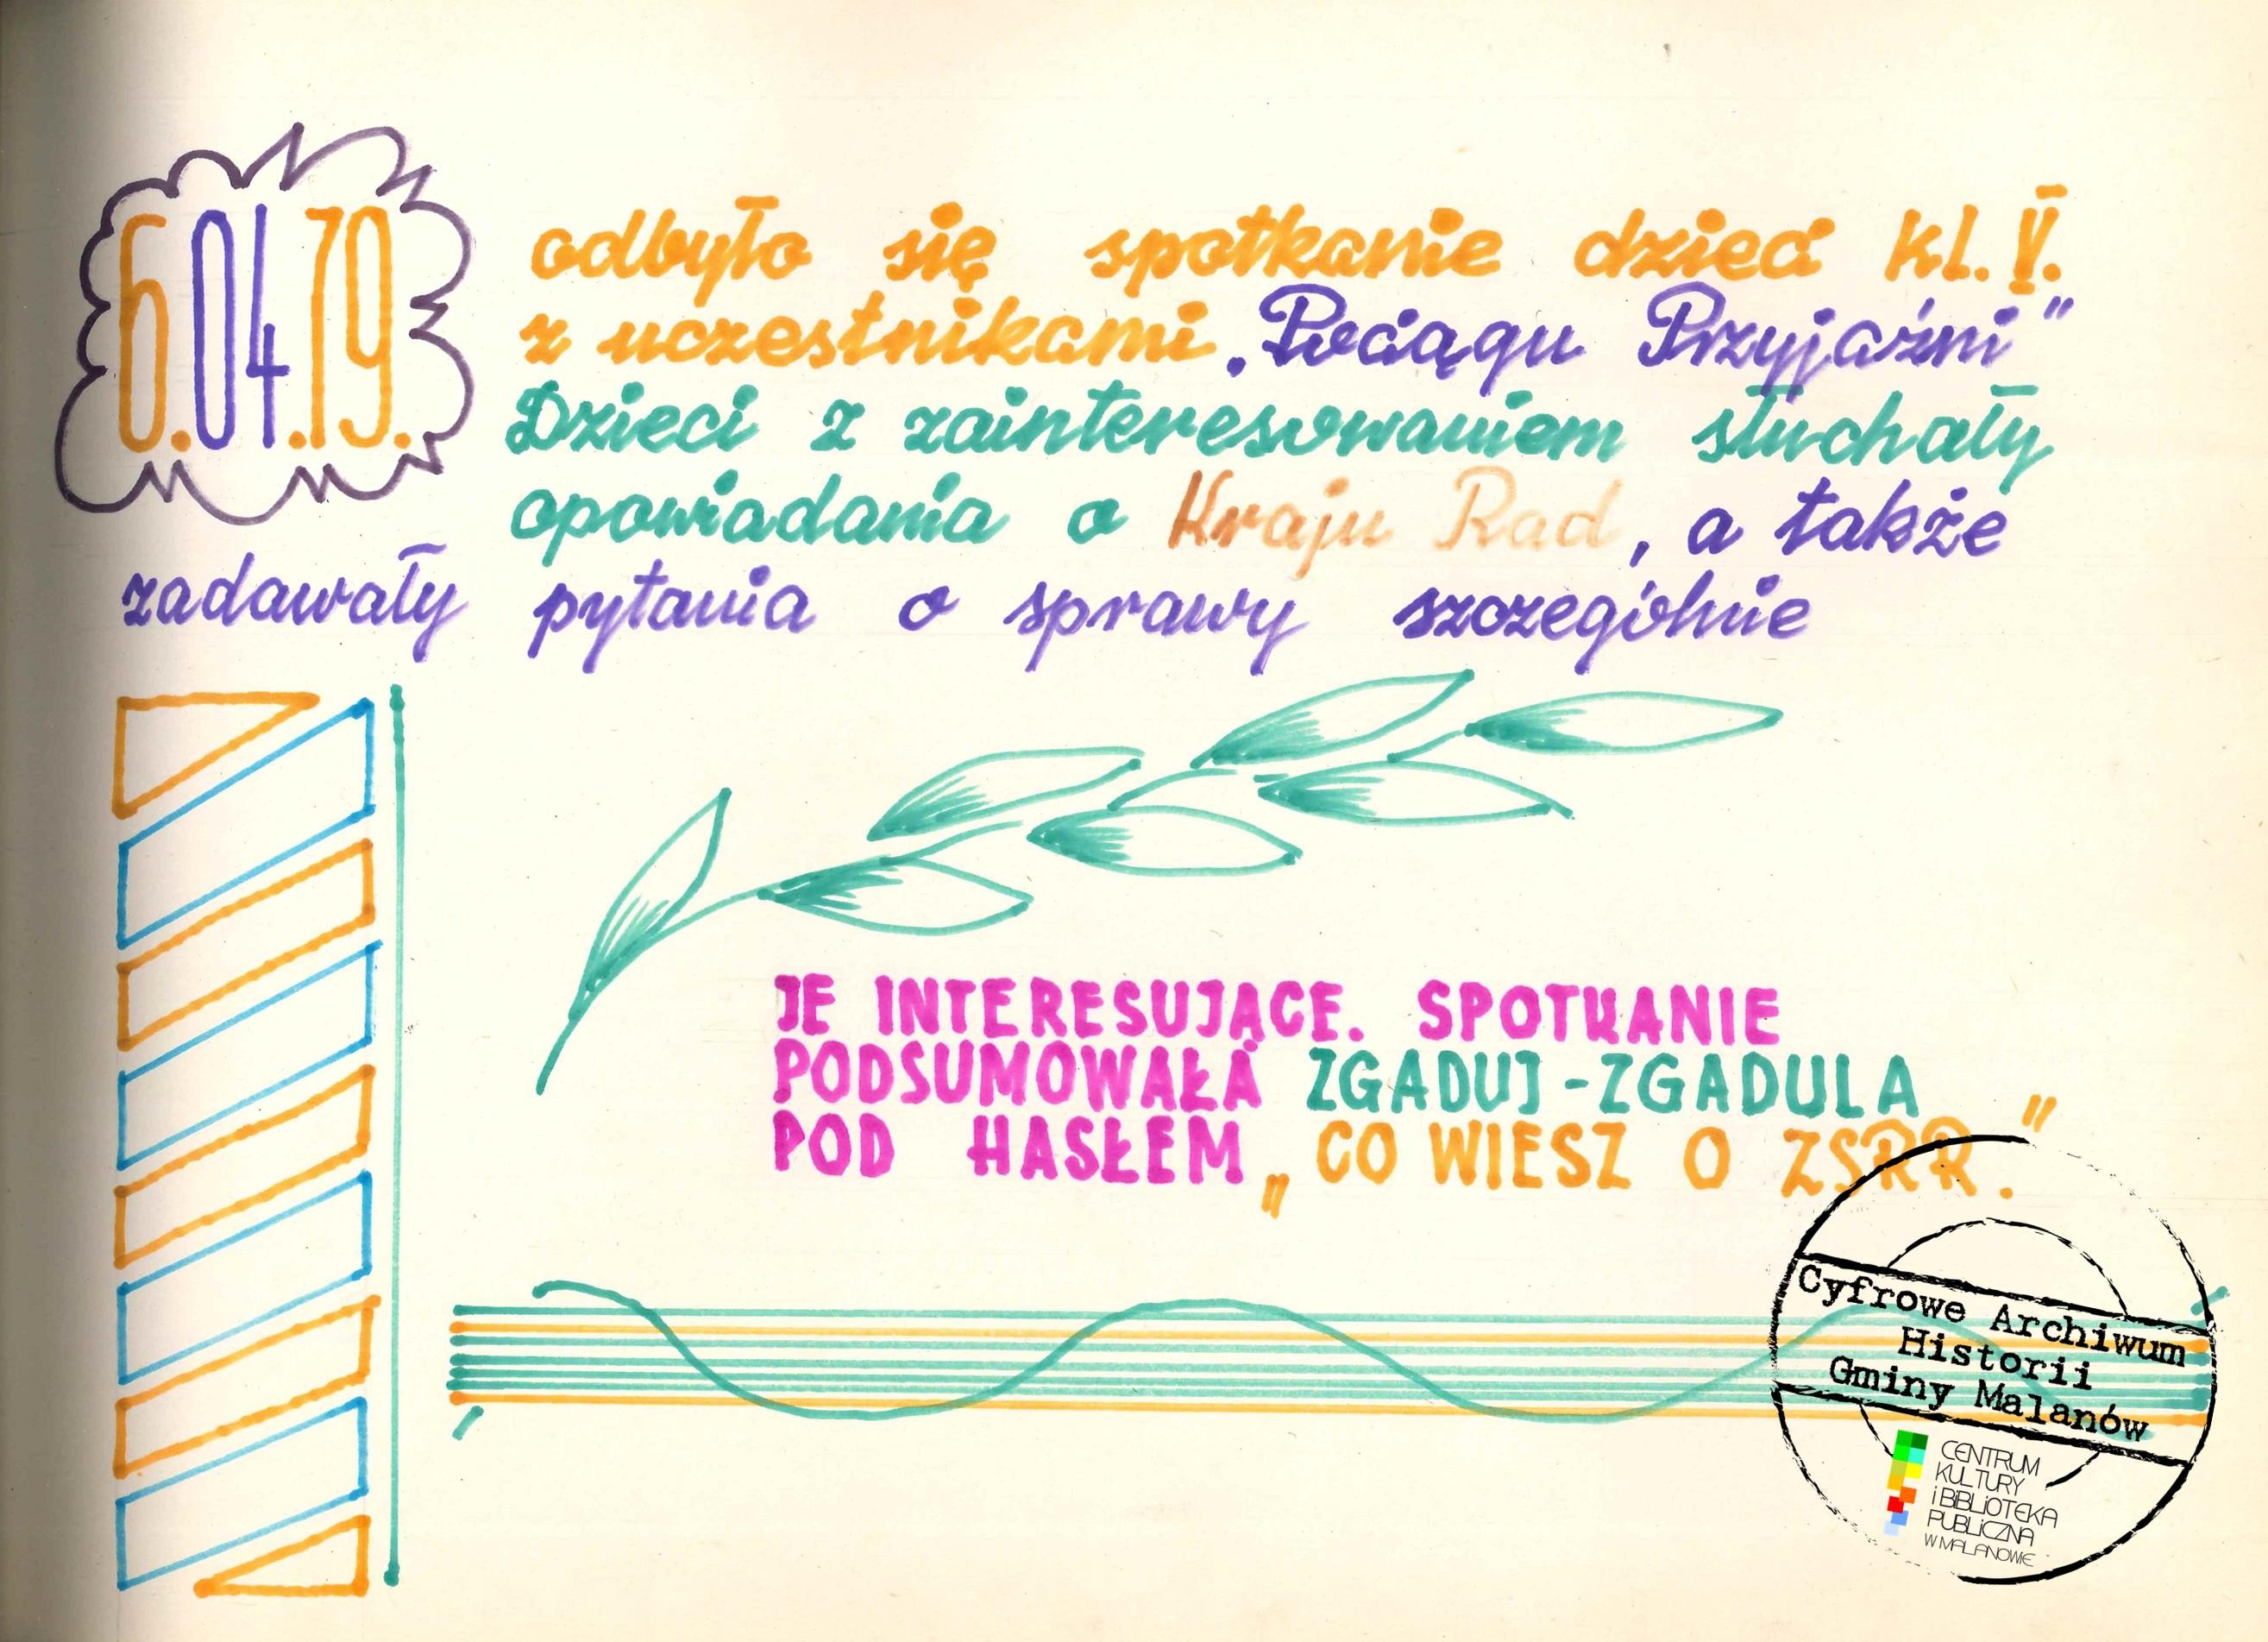 6.04.79.
odbyło się spotkanie dzieci kl. V.
z uczestnikami „Pociągu Przyjaźni”
Dzieci z zainteresowaniem słuchały
opowiadania o Kraju Rad, a także
zadawały pytania o sprawy szczególnie
JE INTERESUJĄCE. SPOTKANIE
PODSUMOWAŁA ZGADUJ-ZGADULA
POD HASŁEM „CO WIESZ O ZSRR.”
Cyfrowe Archiwum
Historii
Gminy Malanów
CENTRUM
KULTURY
i BiBLiOTEKA
PUBLiCZNA
W MALANOWIE